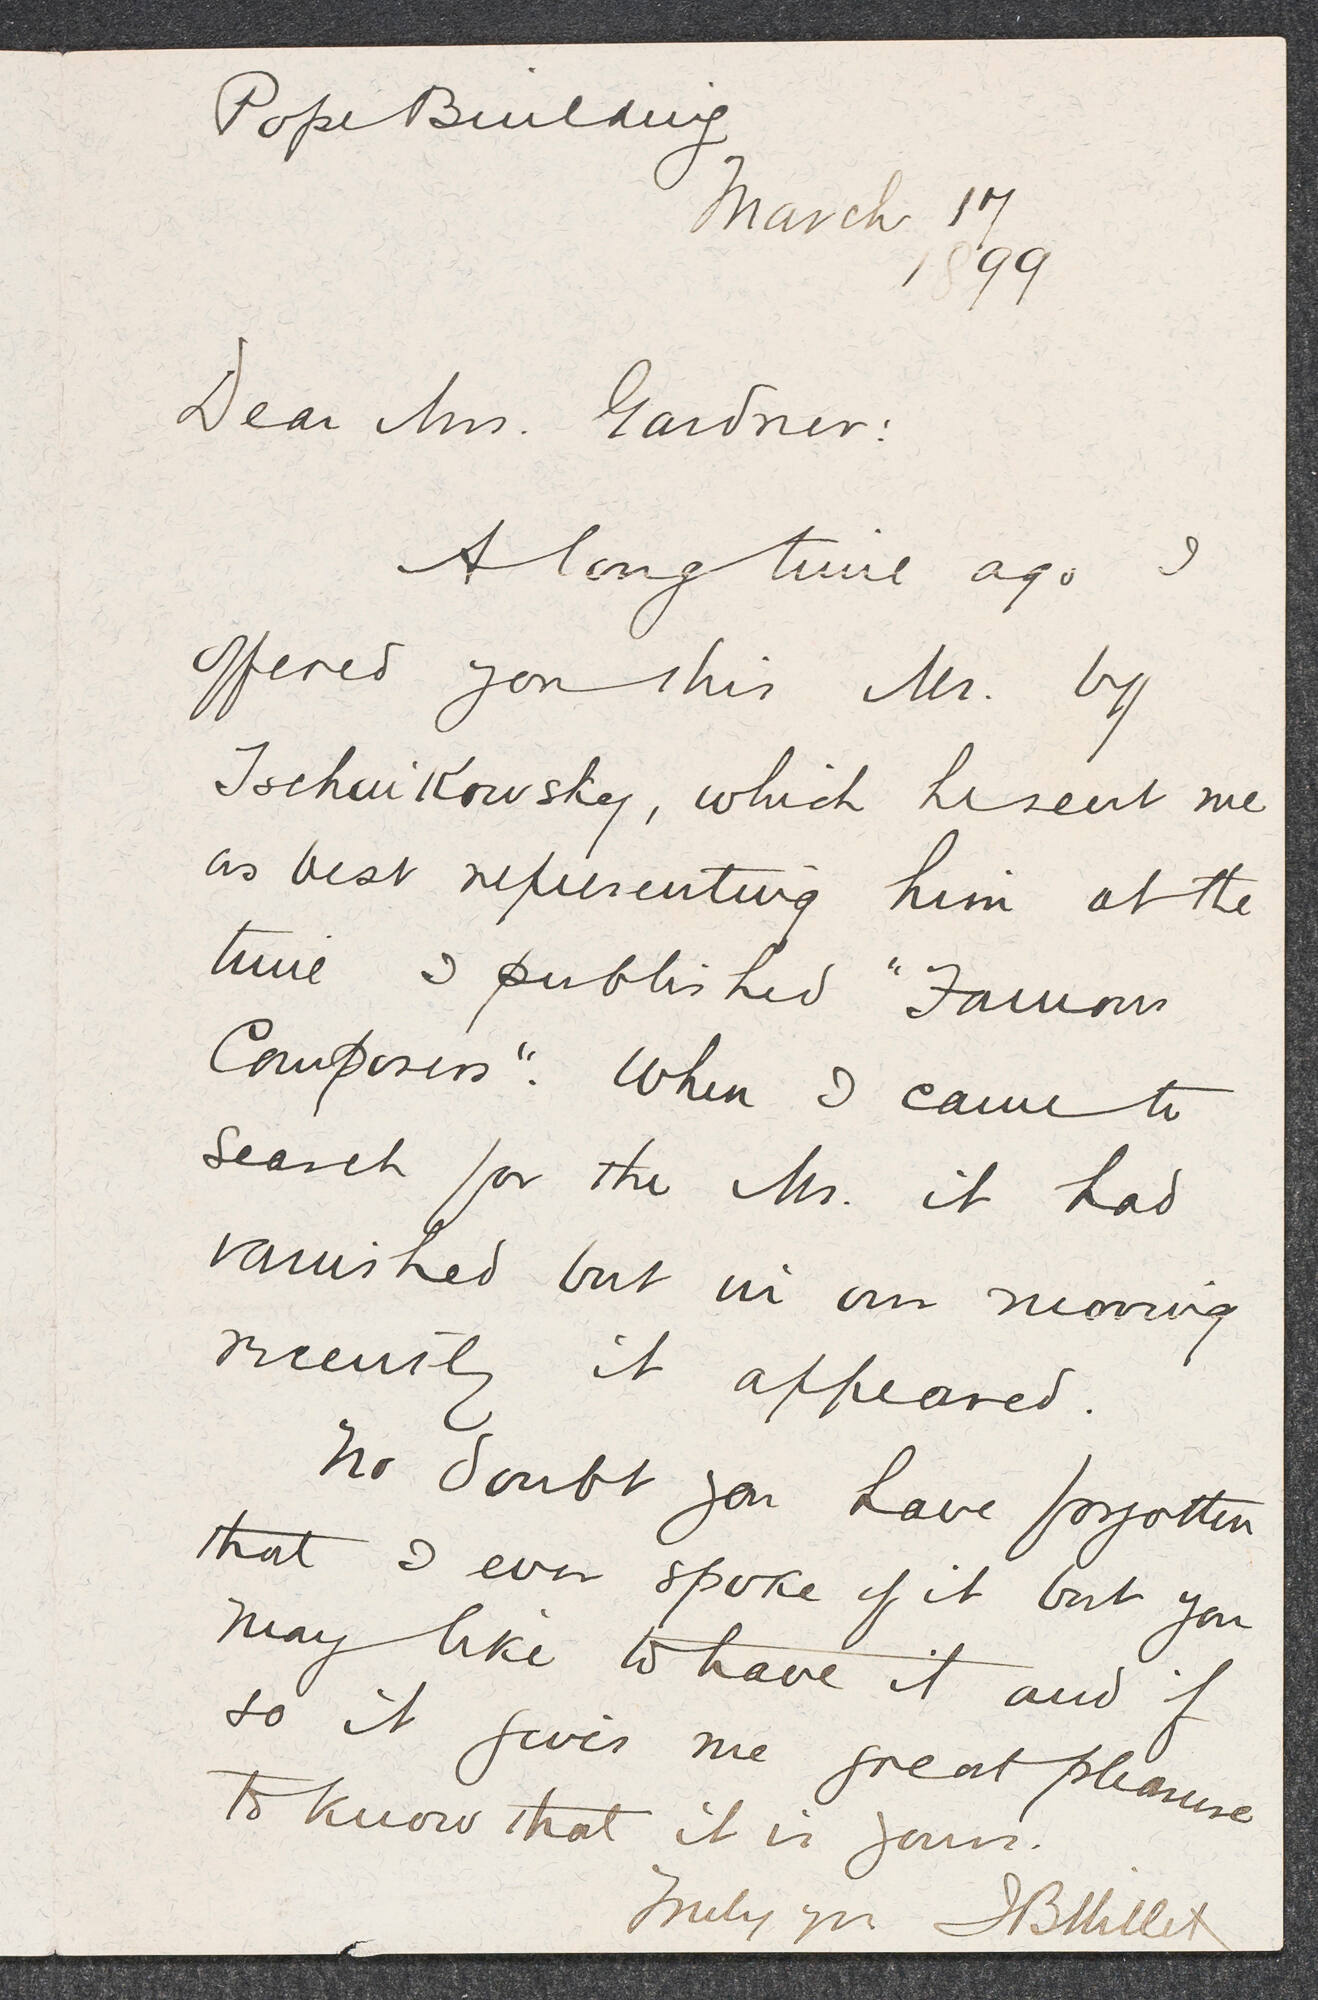 Pope Building
March 17
1899
Dear Mrs. Gardner:
A long time ago I
offered you this Ms. by
Tschaikowsky, which he sent me
as best representing him at the
time I published "Famous
Composers". When I came to
search for the Ms. it had
vanished but in our moving
recently it appeared.
No doubt you have forgotten
that I ever spoke of it but you
may like to have it and if
so it gives me great pleasure
to know that it is yours.
Truly yrs JBMillet